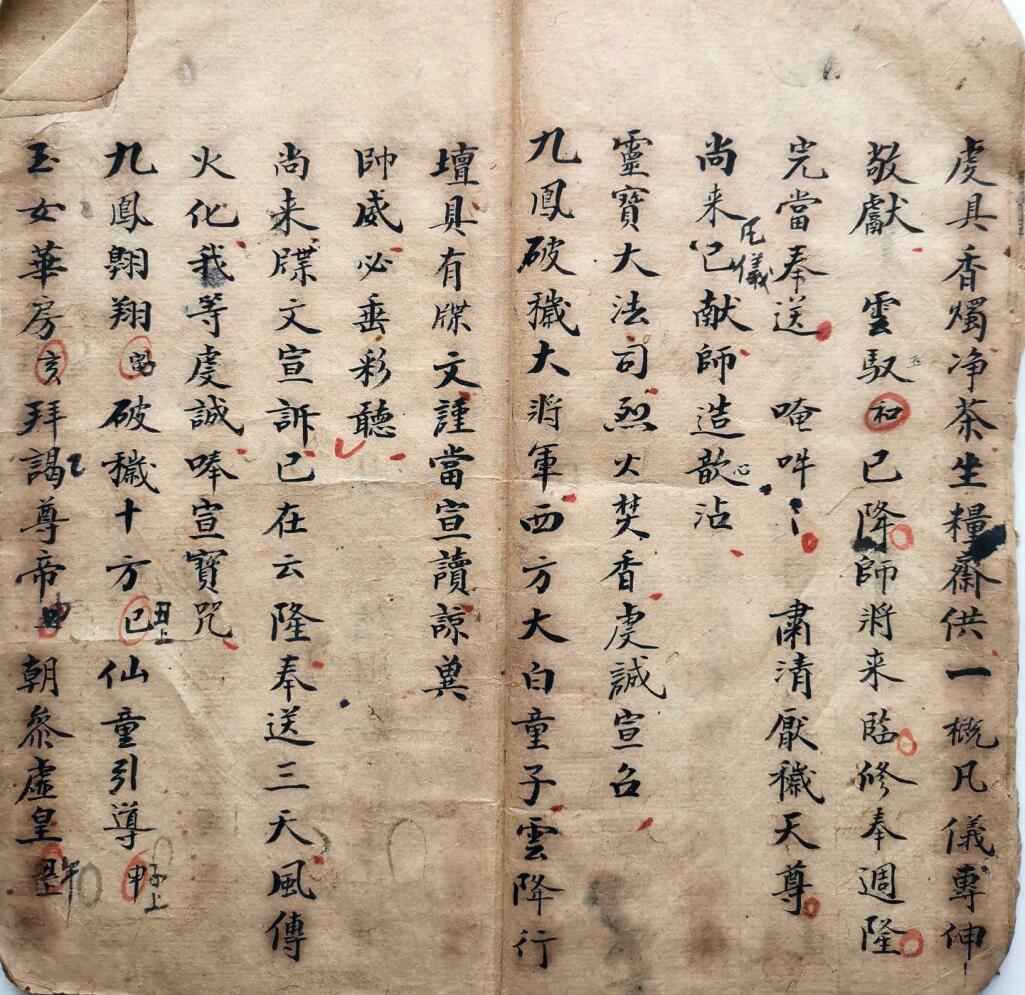 虔具香燭净茶生糧齋供一概凡儀專伸
敬獻 雲馭和已降師將来臨修奉週隆
完當奉送 唵吽 肅清厭穢天尊
尚来凡儀已献師造歆心沾
靈寶大法司烈火焚香虔誠宣召
九鳳破穢大將軍西方大白童子雲降行
壇具有牒文謹當宣讀諒萬
帥威必垂彩聽
尚来牒文宣訴已在云隆奉送三天風傳
火化我等虔誠唪宣寶咒
九鳳翱翔寅破穢十方已丑上仙童引導申子上
玉女華房亥拜謁尊帝申朝叅虛皇丑上午